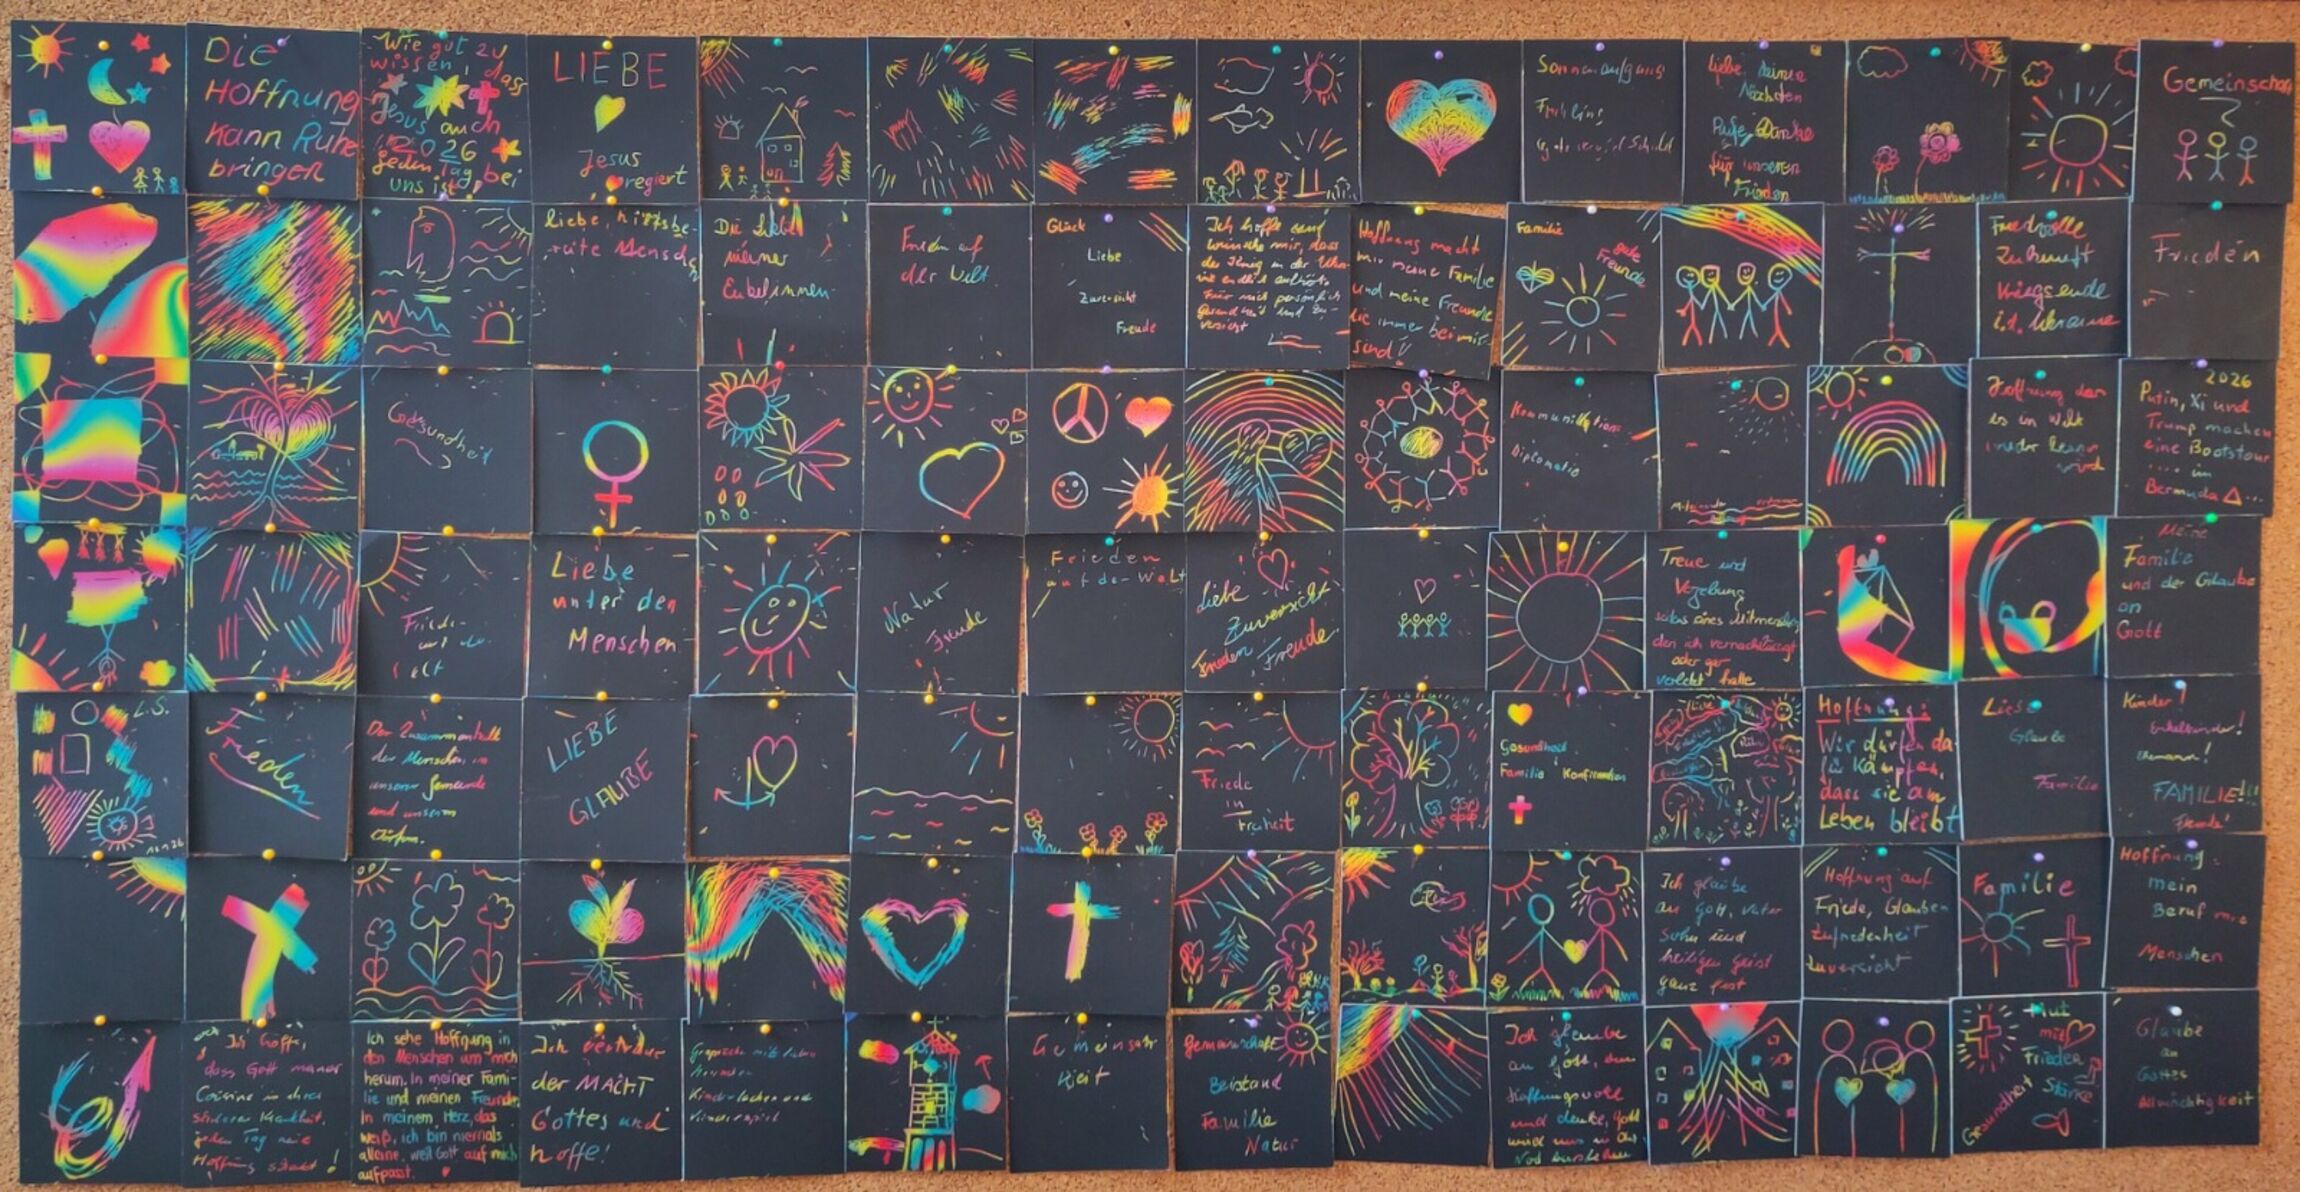 Die
Hoffnung
kann Ruhe
bringen
Wie gut zu
wissen, dass
Jesus auch
2026
jeden Tag bei
uns ist!
LIEBE
Jesus
regiert
Sonnenaufgang
Frühling
Liebe deinen
Nächsten
Danke
für unseren
Frieden
Gemeinschaft
Liebe, hilfsbe-
reite Mensch
Die Liebe
meiner
Enkelinnen
Frieden auf
der Welt
Glück
Liebe
Zuversicht
Freude
Ich hoffe und
wünsche mir, dass
der Krieg in der Ukra-
ine endlich aufhört.
Für mich persönlich
Gesundheit und Zu-
versicht
Hoffnung macht
mir meine Familie
und meine Freunde
die immer bei mir
sind!
Familie
gute
Freunde
Friedvolle
Zukunft
Kriegsende
i.d. Ukraine
Frieden
Gesundheit
Kommunikation
Diplomatie
Miteinander
Hoffnung das
es in
wird
2026
Putin, Xi und
Trump machen
eine Bootstour
.... im
Bermuda △...
Friede
Liebe
unter den
Menschen
Natur
Freude
Frieden
auf der Welt
Liebe
Zuversicht
Frieden Freude
Treue und
Vergebung
eines Mitmenschen
den ich vernachlässigt
oder gar
verletzt hatte
Meine
Familie
und der Glaube
an
Gott
L.S.
Frieden
Der Zusammenhalt
der Menschen in
unserer Gemeinde
und unserem
LIEBE
GLAUBE
Friede
in
Freiheit
Gesundheit
Familie Konfirmation
Hoffnung:
Wir dürfen da-
für kämpfen,
dass sie am
Leben bleibt
Liebe
Glaube
Familie
Kinder!
Enkelkinder!
Ehemann!
FAMILIE!!!
Freude!
Ich glaube
an Gott, Vater
Sohn und
heiligen Geist
ganz fest
Hoffnung auf
Friede, Glauben
Zufriedenheit
Zuversicht
Familie
Hoffnung:
mein
Beruf
Menschen
Ich hoffe,
dass Gott meiner
Cousine in ihrer
Krankheit,
jeden Tag neue
Hoffnung schenkt!
Ich sehe Hoffnung in
den Menschen um mich
herum. In meiner Fami-
lie und meinen Freunden
In meinem Herz, das
weiß, ich bin niemals
alleine, weil Gott auf mich
aufpasst.
Ich vertraue
der MACHT
Gottes und
hoffe!
Gespräche mit lieben
Kinderlachen und
Gemeinsam-
keit
Gemeinschaft
Beistand
Familie
Natur
Ich glaube
an Gott, bin
hoffnungsvoll
und denke, Gott
wird uns in der
Not beistehen
Mut
Frieden
Stärke
Gesundheit
Glaube
an
Gottes
Allmächtigkeit